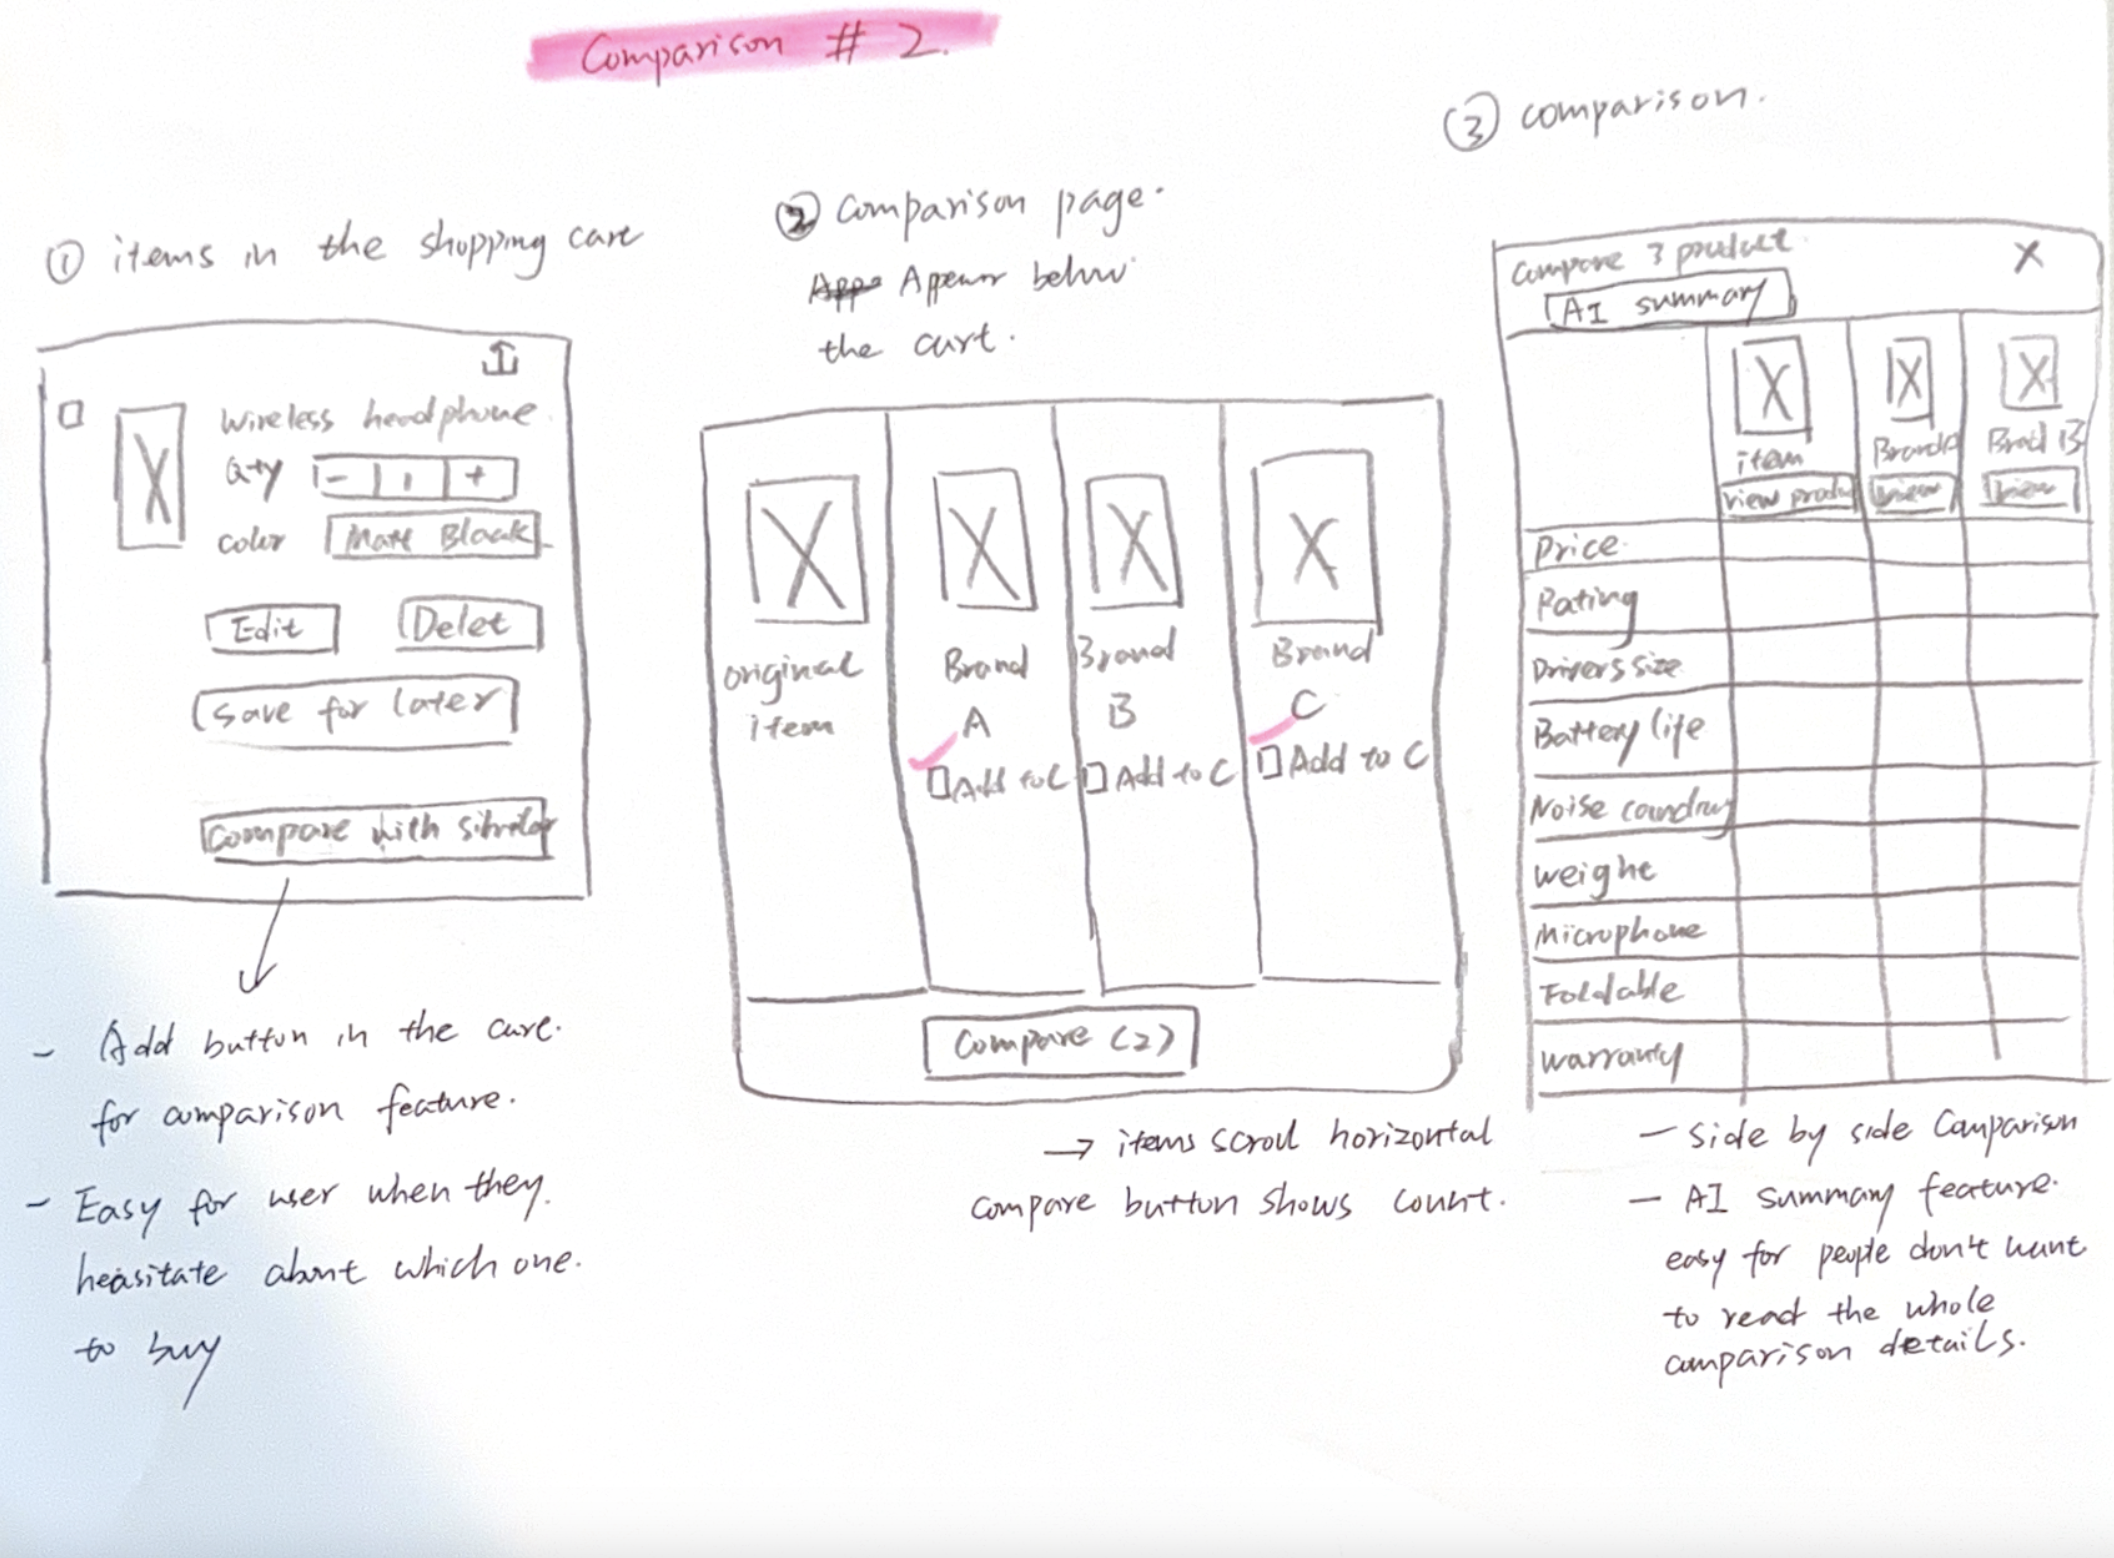 Comparison # 2.
① items in the shopping cart
wireless headphone
Qty - 1 +
color Matt Black
Edit Delet
Save for later
compare with
- Add button in the cart.
for comparison feature.
- Easy for user when they.
heasitate about which one.
to buy
② Comparison page.
Appear below
the cart.
original
item
Brand
A
Add to C
Brand
B
Add to C
Brand
C
Add to C
Compare (2)
→ items scroll horizontal
compare button shows count.
③ comparison.
Compare 3 product X
AI summary
item
view product
Brand A
view
Brad B
view
Price
Rating
Drivers size
Battery life
Noise
weight
Microphone
Foldable
warranty
- Side by side Comparison
- AI summary feature.
easy for people don't want
to read the whole
comparison details.